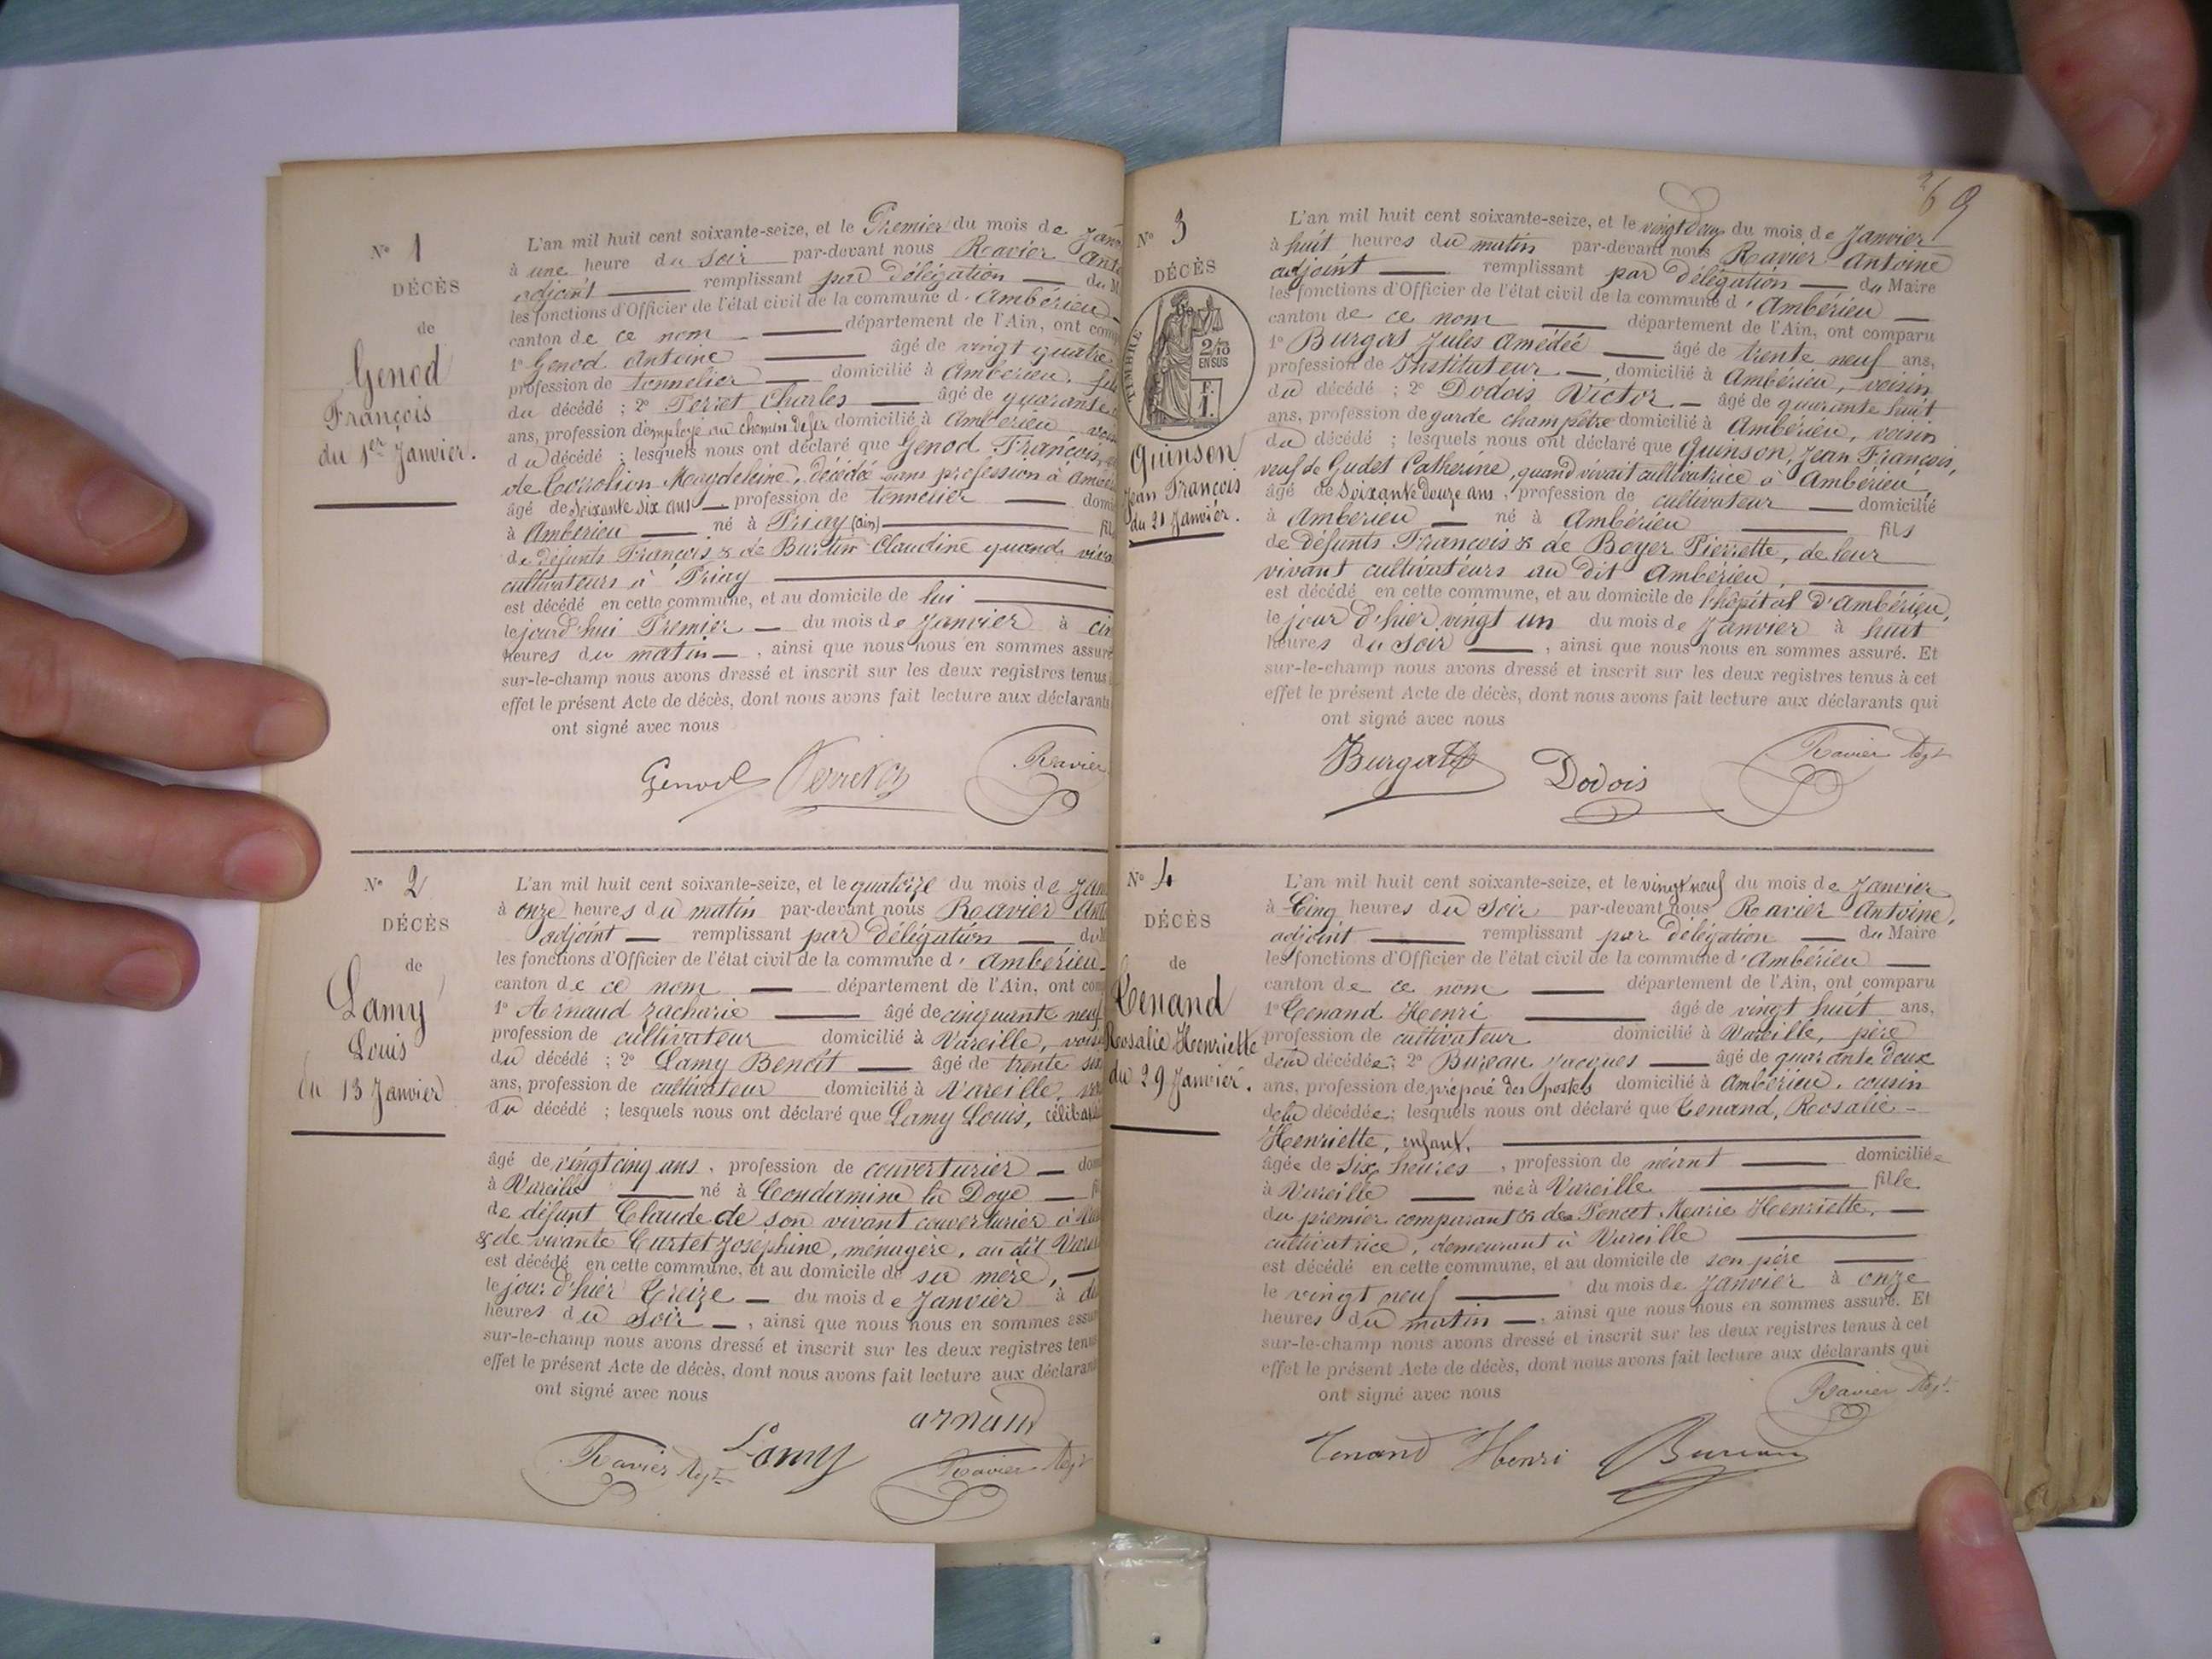 N° 1
DÉCÈS
de
Genod
François
du 1er Janvier.
L'an mil huit cent soixante-seize, et le Premier du mois de Janv
à une heure du soir par-devant nous Ravier Anto
adjoint remplissant par délégation du M
les fonctions d'Officier de l'état civil de la commune d'Ambérieu
canton de ce nom département de l'Ain, ont comp
1° Genod Antoine âgé de vingt quatre
profession de tonnelier domicilié à Ambérieu, fils
du décédé ; 2° Perret Charles âgé de quarante
ans, profession d'employé au chemin de fer domicilié à Ambérieu vois
du décédé ; lesquels nous ont déclaré que Genod François,
de Magdeleine, décédé sans profession à Ambé
âgé de Soixante six ans profession de tonnelier domi
à Ambérieu né à Priay (ain) fil
de défunts François & de Burtin Claudine quand viva
cultivateurs à Priay
est décédé en cette commune, et au domicile de lui
le jourd'hui Premier du mois de Janvier à cin
heures du matin , ainsi que nous nous en sommes assuré
sur-le-champ nous avons dressé et inscrit sur les deux registres tenus à
effet le présent Acte de décès, dont nous avons fait lecture aux déclarants
ont signé avec nous
Genod Perret Ch Ravier
N° 2
DÉCÈS
de
Lamy
Louis
du 13 Janvier
L'an mil huit cent soixante-seize, et le quatorze du mois de Jan
à onze heures du matin par-devant nous Ravier Anto
adjoint remplissant par délégation du M
les fonctions d'Officier de l'état civil de la commune d'Ambérieu
canton de ce nom département de l'Ain, ont com
1° Arnaud Zacharie âgé de cinquante neuf
profession de cultivateur domicilié à Vareille, voisi
du décédé ; 2° Lamy Benoît âgé de trente six
ans, profession de cultivateur domicilié à Vareille,
du décédé ; lesquels nous ont déclaré que Lamy Louis, célibat
âgé de vingt cinq ans , profession de couverturier dom
à Vareille né à Condamine la Doye fi
de défunt Claude de son vivant couverturier à
& de vivante Curtet Joséphine, ménagère, au dit Varei
est décédé en cette commune, et au domicile de sa mère,
le jour d'hier Treize du mois de Janvier à di
heures du soir , ainsi que nous nous en sommes assur
sur-le-champ nous avons dressé et inscrit sur les deux registres tenus
effet le présent Acte de décès, dont nous avons fait lecture aux déclaran
ont signé avec nous
arnaud
Ravier Adjt Lamy Ravier Adjt
269
N° 3
DÉCÈS
TIMBRE
2/10
EN SUS
F.
1.
Quinson
Jean François
du 21 Janvier.
L'an mil huit cent soixante-seize, et le vingt deux du mois de Janvier
à huit heures du matin par-devant nous Ravier Antoine
adjoint remplissant par délégation du Maire
les fonctions d'Officier de l'état civil de la commune d'Ambérieu
canton de ce nom département de l'Ain, ont comparu
1° Burgat Jules Amédée âgé de trente neuf ans,
profession de Instituteur domicilié à Ambérieu, voisin
du décédé ; 2° Dodois Victor âgé de quarante huit
ans, profession de garde champêtre domicilié à Ambérieu, voisin
du décédé ; lesquels nous ont déclaré que Quinson, Jean François,
veuf de Gudet Catherine, quand vivait cultivatrice à Ambérieu,
âgé de Soixante douze ans , profession de cultivateur domicilié
à Ambérieu né à Ambérieu fils
de défunts François & de Boyer Pierrette, de leur
vivant cultivateurs au dit Ambérieu,
est décédé en cette commune, et au domicile de l'hôpital d'Ambérieu,
le jour d'hier vingt un du mois de Janvier à huit
heures du Soir , ainsi que nous nous en sommes assuré. Et
sur-le-champ nous avons dressé et inscrit sur les deux registres tenus à cet
effet le présent Acte de décès, dont nous avons fait lecture aux déclarants qui
ont signé avec nous
Burgat Dodois Ravier Adjt
N° 4
DÉCÈS
de
Tenand
Rosalie Henriette
du 29 Janvier.
L'an mil huit cent soixante-seize, et le vingt neuf du mois de Janvier
à Cinq heures du Soir par-devant nous Ravier Antoine,
adjoint remplissant par délégation du Maire
les fonctions d'Officier de l'état civil de la commune d'Ambérieu
canton de ce nom département de l'Ain, ont comparu
1° Tenand Henri âgé de vingt huit ans,
profession de cultivateur domicilié à Vareille, père
de la décédée ; 2° Bureau Jacques âgé de quarante deux
ans, profession de préposé des postes domicilié à Ambérieu, cousin
de la décédée ; lesquels nous ont déclaré que Tenand, Rosalie
Henriette, enfant,
âgée de Six heures , profession de néant domiciliée
à Vareille née à Vareille fille
du premier comparant & de Poncet Marie Henriette,
cultivatrice, demeurant à Vareille
est décédé en cette commune, et au domicile de son père
le vingt neuf du mois de Janvier à onze
heures du matin , ainsi que nous nous en sommes assuré. Et
sur-le-champ nous avons dressé et inscrit sur les deux registres tenus à cet
effet le présent Acte de décès, dont nous avons fait lecture aux déclarants qui
ont signé avec nous Ravier Adjt
Tenand Henri Bureau